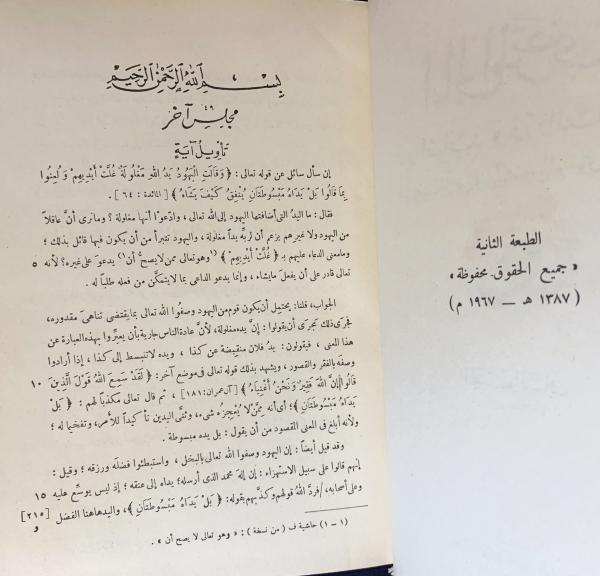 بِسْمِ اللهِ الرَّحْمٰنِ الرَّحِيمِ
٤٩
مجلس آخر
تأويل آية
إن سأل سائل عن قوله تعالى: ﴿ وَقَالَتِ الْيَهُودُ يَدُ اللهِ مَغْلُولَةٌ غُلَّتْ أَيْدِيهِمْ وَلُعِنُوا
بِمَا قَالُوا بَلْ يَدَاهُ مَبْسُوطَتَانِ يُنْفِقُ كَيْفَ يَشَاءُ ﴾ [المائدة : ٦٤] .
فقال : ما اليدُ التى أضافتها اليهود إلى الله تعالى ، وادّعوا أنها مغلولة ؟ وما نرى أنَّ عاقلًا
من اليهود ولا غيرهم يزعم أن لربِّه يدًا مغلولة ، واليهود تتبرأ من أن يكون فيها قائل بذلك ؛
وما معنى الدعاء عليهم بـ ﴿ غُلَّتْ أَيْدِيهِمْ ﴾ (١وهو تعالى ممن لا يصح أن١) يدعوَ على غيره ؟ لأنه ٥
تعالى قادر على أن يفعل ما يشاء ، وإنما يدعو الداعى بما لا يتمكّن من فعله طلبًا له .
الجواب، قلنا: يحتمل أن يكون قوم من اليهود وصفُوا الله تعالى بما يقتضى تناهىَ مقدوره،
فجرى ذلك مَجرَى أن يقولوا : إنّ يده مغلولة، لأنَّ عادة الناس جارية بأن يعبِّروا بهذه العبارة عن
هذا المعنى ، فيقولون : يدُ فلان منقبضة عن كذا ، ويده لا تنبسط إلى كذا ، إذا أرادوا
وصفَه بالفقر والقصور، ويشهد بذلك قوله تعالى فى موضع آخر: ﴿ لَقَدْ سَمِعَ اللهُ قَوْلَ الَّذِينَ ١٠
قَالُوا إِنَّ اللهَ فَقِيرٌ وَنَحْنُ أَغْنِيَاءُ ﴾ [آل عمران: ١٨١] ، ثم قال تعالى مكذبًا لهم : ﴿ بَلْ
يَدَاهُ مَبْسُوطَتَانِ ﴾؛ أى أنه ممّنْ لا يُعجِزُه شىء، وثنّى اليدين تأكيدًا للأمر، وتفخيما له ؛
ولأنه أبلغ فى المعنى المقصود من أن يقول : بل يده مبسوطة .
وقد قيل أيضًا : إن اليهود وصفوا الله تعالى بالبخل ، واستبطئوا فضلَه ورزقَه ؛ وقيل :
إنهم قالوا على سبيل الاستهزاء : إن إلهَ محمد الذى أرسله؛ يداه إلى عنقه ؛ إذ ليس يوسِّع عليه ١٥
وعلى أصحابه، /فردَّ اللهُ قولهم وكذَّبهم بقوله: ﴿ بَلْ يَدَاهُ مَبْسُوطَتَانِ ﴾، واليد هاهنا الفضل [٢١٥]
و
(١ – ١) حاشية ف ( من نسخة ) : « وهو تعالى لا يصح أن » .
الطبعة الثانية
« جميع الحقوق محفوظة »
(١٣٨٧ هـ – ١٩٦٧ م)